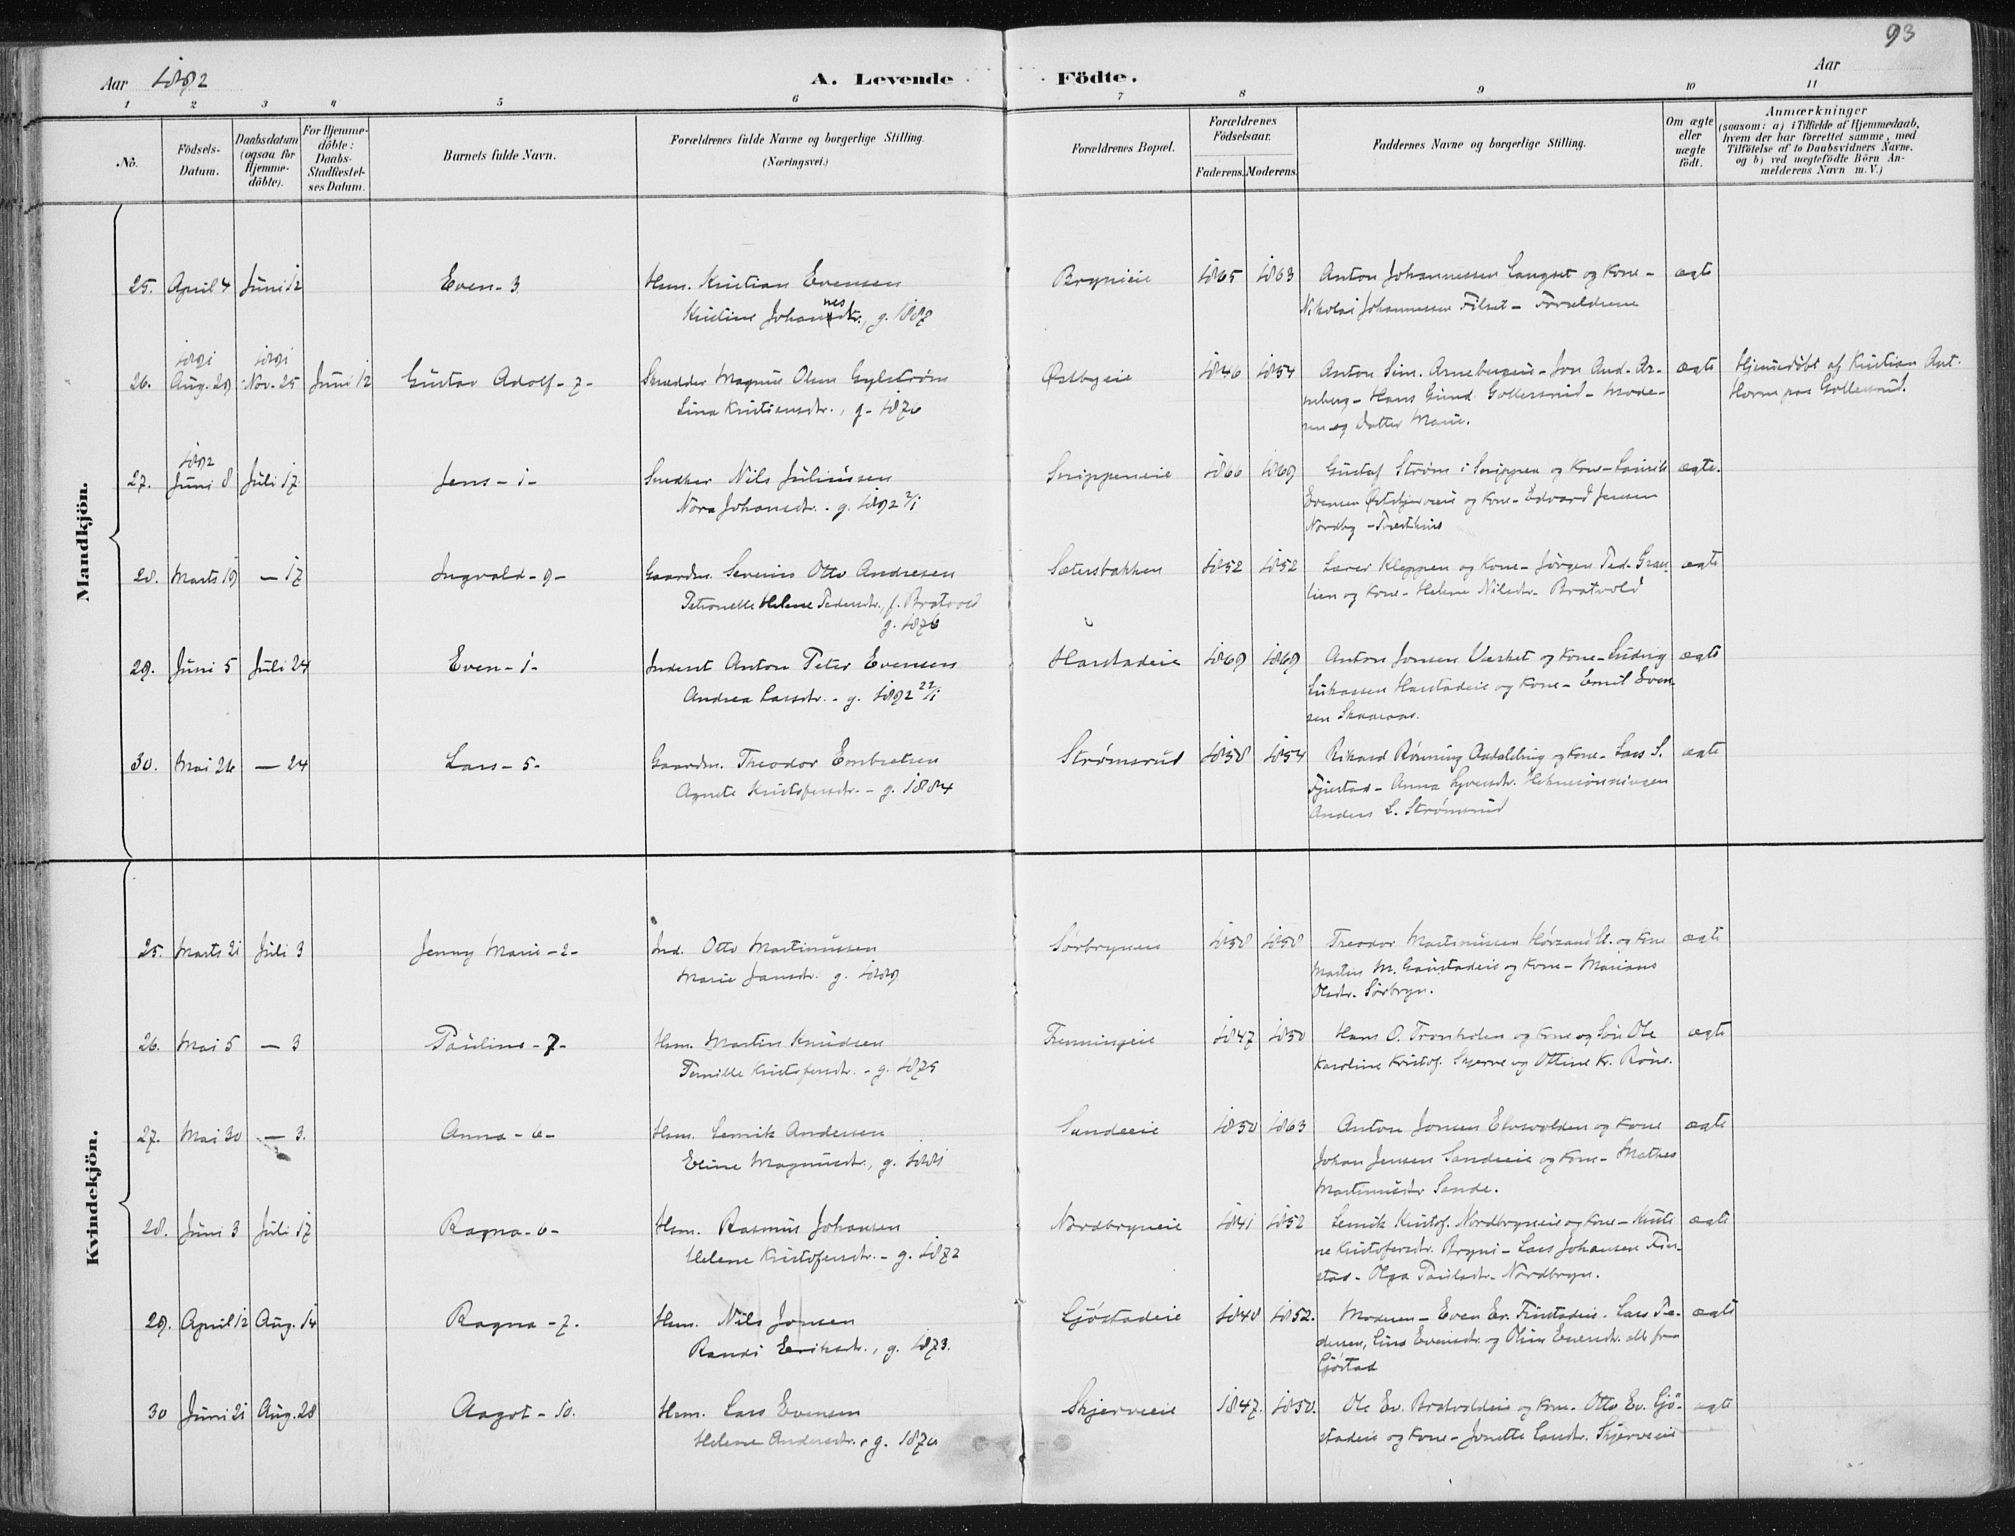 93
Aar 1892
A. Levende Födte.
Aar
1 2 3 4 5 6 7 8 9 10 11
No.
Födsels-Datum.
Daabsdatum (ogsaa for Hjemme-döbte).
For Hjemme-döbte: Daabs-Stadfæstel-ses Datum.
Barnets fulde Navn.
Forældrenes fulde Navne og borgerlige Stilling.
(Næringsvei.)
Forældrenes Bopæl.
Forældrenes Födselsaar.
Faderens. Moderens.
Faddernes Navne og borgerlige Stilling.
Om ægte eller uægte födt.
Anmærkninger
(saasom: a) i Tilfælde af Hjemmedaab,
hvem der har forrettet samme, med
Tilföielse af to Daabsvidners Navne.
og b) ved uegtefödte Börn An-
melderens Navn m. V.)
Mandkjön.
25. April 4 Juni 12 Even - 3 Hsm. Kristian Evensen Brynieie 1865 1863 Anton Johannessen Langset og Kone - ægte
Kristine Johannesdtr., g. 1887 Nikolai Johannessen Filset - Forældrene
1891 1891
26. Aug. 29 Nov. 25 Juni 12 Gustav Adolf - 7 - Skrædder Magnus Olsen Gylstrøm Østbyeie 1846 1854 Anton Sim. Arnebergeie - Jon And. Ar- ægte Hjemmedøbt af Kristian Ant.
Lina Kristiansdtr., g. 1876 neberg - Hans Gund. Gollersrud - Mode- Horne paa Gollersrud.
ren og Datter Marie.
1892
27. Juni 8 Juli 17 Jens - 1 - Snedker Nils Juliussen Snippeneie 1866 1869 Gustaf Strøm i Snippen og Kone - ægte.
Nora Johansdtr. - g. 1892 2/1 Evensen og Kone - Edvard Jensen
Nordby
28. Marts 19 - 17 Ingvald - 9 - Gaardm. Severin Otto Andresen Sætersbakken 1852 1852 Lærer Kleppen og Kone - Jørgen Ped. Græs- ægte
Petronelle Helene Pedersdtr., f. Bratvold lien og Kone - Helene Nilsdtr. Bratvold
g. 1876
29. Juni 5 Juli 24 Even - 1 - Inderst Anton Peter Evensen Harstadeie 1869 1869 Anton Jonsen Værket og Kone - Ludvig ægte
Andrea Larsdtr. - g. 1892 22/1 Lukassen Harstadeie og Kone - Emil Even-
sen Skaaraas.
30. Mai 26 - 24 Lars - 5 - Gaardm. Theodor Embretsen Strømsrud 1858 1854 Rikard Rønning og Kone - Lars S. ægte
Agnete Kristofersdtr. - g. 1884 Fjeistad - Anna Syversdtr.
Anders L. Strømsrud
Kvindekjön.
25. Marts 21 Juli 3 Jenny Marie - 2 - Ind. Otto Martinussen Sørbrynen 1858 1858 Theodor Martinussen og Kone ægte
Marie Jansdtr. g. 1889 Martin M. Gaustadeie og Kone - Mariane
Olsdtr. Sørbryn.
26. Mai 5 - 3 Pauline - 7 - Hsm. Martin Knudsen Fenningeie 1847 1850 Hans O. Tronholen og Kone og Søn Ole ægte
Pernille Kristofersdtr. - g. 1875 Karoline Kristof. Skjerve og Ottine Kr. Røne.
27. Mai 30 - 3. Anna - 6 - Hsm. Lemik Andersen Sandeeie 1850 1863 Anton Jonsen Elvsvolden og Kone ægte
Eline Magnusdtr., g. 1881 Johan Jensen Sandeeie og Kone - Mathea
Martinusdtr Sande.
28. Juni 3 Juli 17 Ragna - 6 - Hsm. Rasmus Johansen Nordbrynieie 1841 1852 Lemik Kristof. Nordbrynieie og Kone - Kristi- ægte
Helene Kristofersdtr. - g. 1872 ne Kristofersdtr. Bryni - Lars Johansen Fin-
stad - Olga Paulsdtr. Nordbryn.
29. April 12 Aug. 14 Ragna - 7. Hsm. Nils Jonsen Gjøstadeie 1848 1852. Moderen - Even Er. Finstadeie. Lars Pe- ægte
Randi Eriksdtr., g. 1873. dersen, Lina Evensdtr. og Oline Evensdtr. alle fra
Gjøstad
30 Juni 21 Aug. 28 Aagot - 10. Hsm. Lars Evensen Skjerveeie 1847. 1850. Ole Ev. Bratvoldeie og Kone - Otto Ev. Gjø- ægte
Helene Andersdtr., g. 1870 stadeie og Kone - Jonette Larsdtr. Skjerveeie